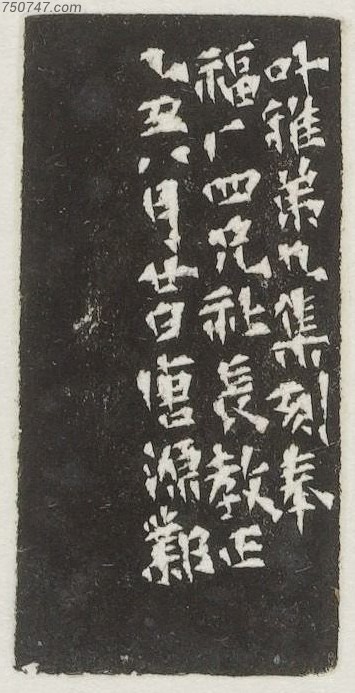 750747.com
叶雅弟九集刻奉
福厂四兄社長教正
乙丑八月廿日唐源鄴